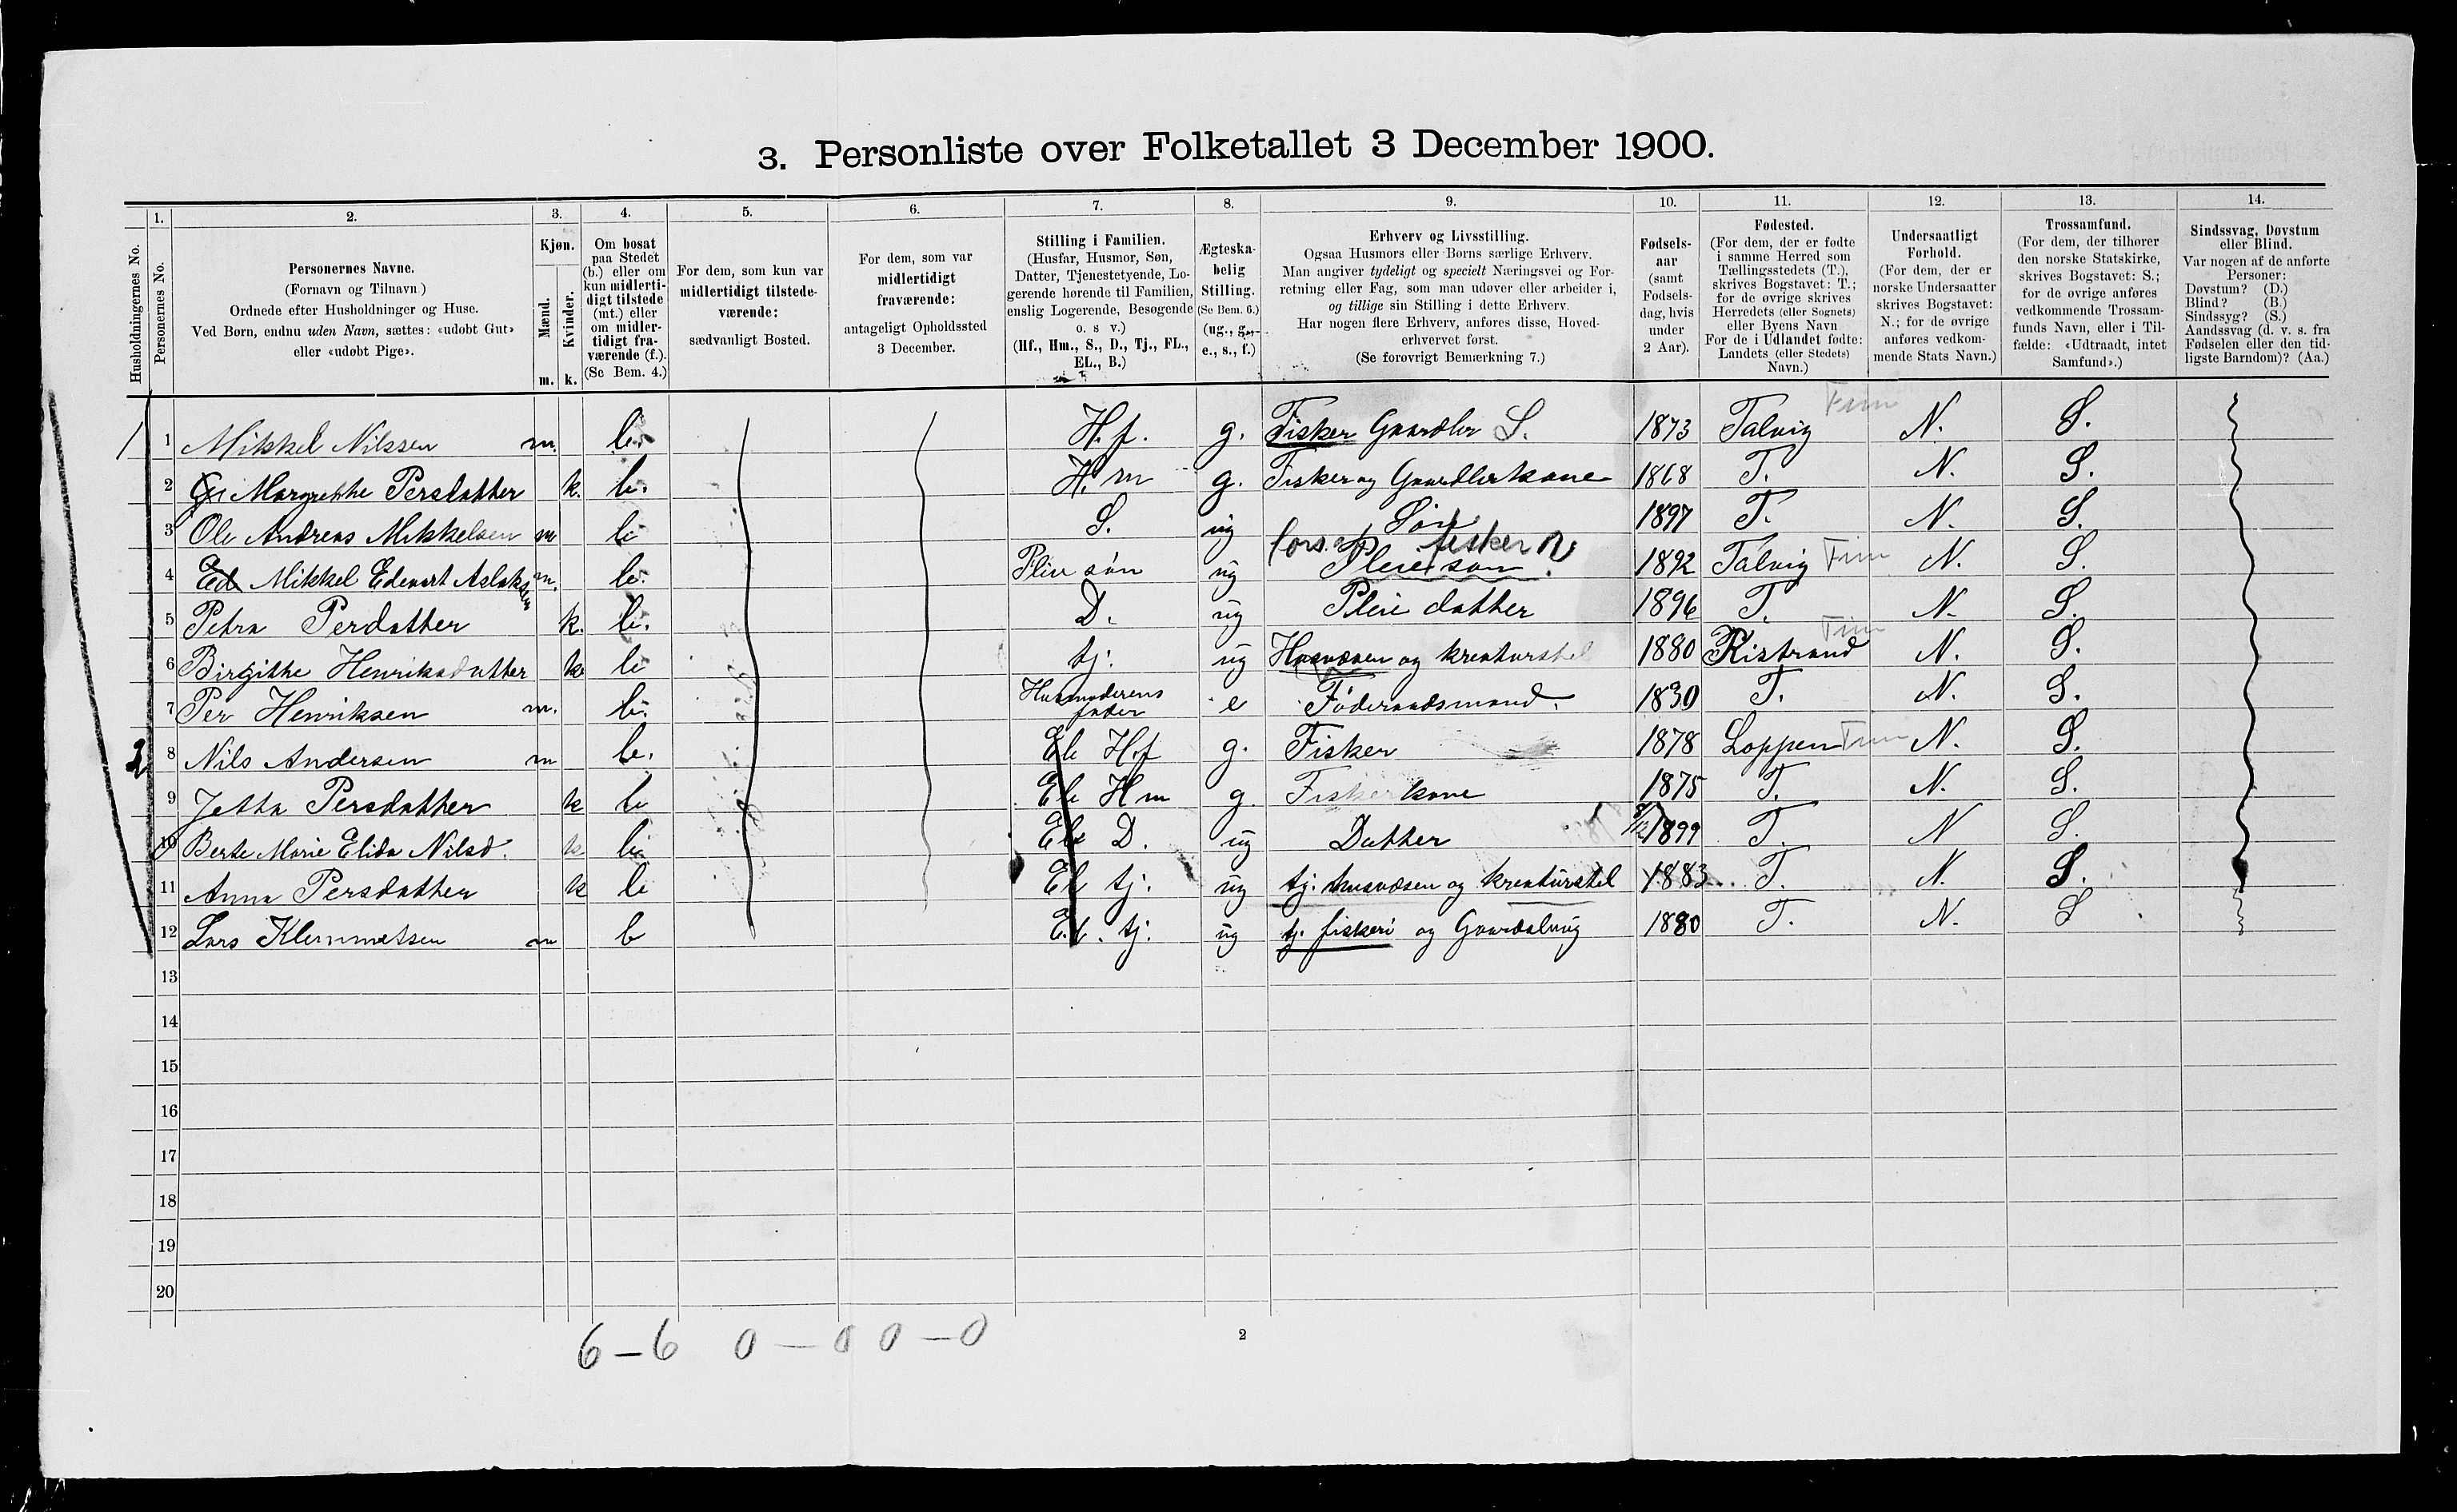 3. Personliste over Folketallet 3 December 1900.
Husholdningernes No.
1.
Personernes No.
2.
Personernes Navne.
(Fornavn og Tilnavn)
Ordnede efter Husholdninger og Huse.
Ved Børn, endnu uden Navn, sættes: «udøbt Gut»
eller «udøbt Pige».
3.
Kjøn.
Mænd.
Kvinder.
m. k.
4.
Om bosat
paa Stedet
(b.) eller om
kun midlerti-
digt tilstede
(mt.) eller
om midler-
tidigt fra-
værende (f.).
(Se Bem. 4.)
5.
For dem, som kun var
midlertidigt tilstede-
værende:
sædvanligt Bosted.
6.
For dem, som var
midlertidigt
fraværende:
antageligt Opholdssted
3 December.
7.
Stilling i Familien.
(Husfar, Husmor, Søn,
Datter, Tjenestetyende, Lo-
gerende hørende til Familien,
enslig Logerende, Besøgende
o. s v.)
(Hf., Hm., S., D., Tj., FL.,
EL., B.)
8.
Ægteska-
belig
Stilling.
(Se Bem. 6.)
(ug., g.,
e., s., f.)
9.
Erhverv og Livsstilling.
Ogsaa Husmors eller Børns særlige Erhverv.
Man angiver tydeligt og specielt Næringsvei og For-
retning eller Fag, som man udøver eller arbeider i,
og tillige sin Stilling i dette Erhverv.
Har nogen flere Erhverv, anføres disse, Hoved-
erhvervet først.
(Se forøvrigt Bemærkning 7.)
10.
Fødsels-
aar
(samt
Fødsels-
dag, hvis
under
2 Aar).
11.
Fødested.
(For dem, der er fødte
i samme Herred som
Tællingsstedets (T.),
skrives Bogstavet: T.;
for de øvrige skrives
Herredets (eller Sognets)
eller Byens Navn
For de i Udlandet fødte:
Landets (eller Stedets)
Navn.)
12.
Undersaatligt
Forhold.
(For dem, der er
norske Undersaatter
skrives Bogstavet:
N.; for de øvrige
anføres vedkom-
mende Stats Navn.)
13.
Trossamfund.
(For dem, der tilhører
den norske Statskirke,
skrives Bogstavet: S.;
for de øvrige anføres
vedkommende Trossam-
funds Navn, eller i Til-
fælde: «Udtraadt, intet
Samfund».)
14.
Sindssvag, Døvstum
eller Blind.
Var nogen af de anførte
Personer:
Døvstum? (D.)
Blind? (B.)
Sindssyg? (S.)
Aandssvag (d. v. s. fra
Fødselen eller den tid-
ligste Barndom)? (Aa.)
1 1 Mikkel Nilssen m. b. H.f. g. Fisker Gaardbr S. 1873 Talvig Fin N. S.
2 Margrethe Persdatter k. b. H. m g. Fisker og Gaardbrkone 1868 T. N. S.
3 Ole Andreas Mikkelsen m b S. ug Søn 1897 T. N. S.
4 Mikkel Edevart Aslaksen m. b. Pleiesøn ug fors. af fisker Pleiesøn 1892 Talvig Fin N. S.
5 Petra Perdatter k. b. D. ug Pleie datter 1896 T. N. S.
6 Birgithe Henriksdatter k b tj. ug Husvæsen og kreaturstel 1880 Kistrand Fin N. S.
7 Per Henriksen m. b. Husmoderens fader e Føderaadsmand. 1830 T. N. S.
2 8 Nils Andersen m b. El Hf g. Fisker 1878 Loppen Fin N. S.
9 Jetta Persdatter k b El Hm g. Fiskerkone 1875 T. N. S.
10 Berte Marie Elida Nilsd. k b El D. ug Datter 1899 T. N S.
11 Anna Persdatter k b El tj. ug tj. husvæsen og kreaturstel 1883 T. N. S.
12 Lars Klemmetsen m b El. tj. ug tj. fiskeri og Gaardsbrug 1880 T. N. S
13
14
15
16
17
18
19
20
6 – 6 0 – 0 0 – 0
2